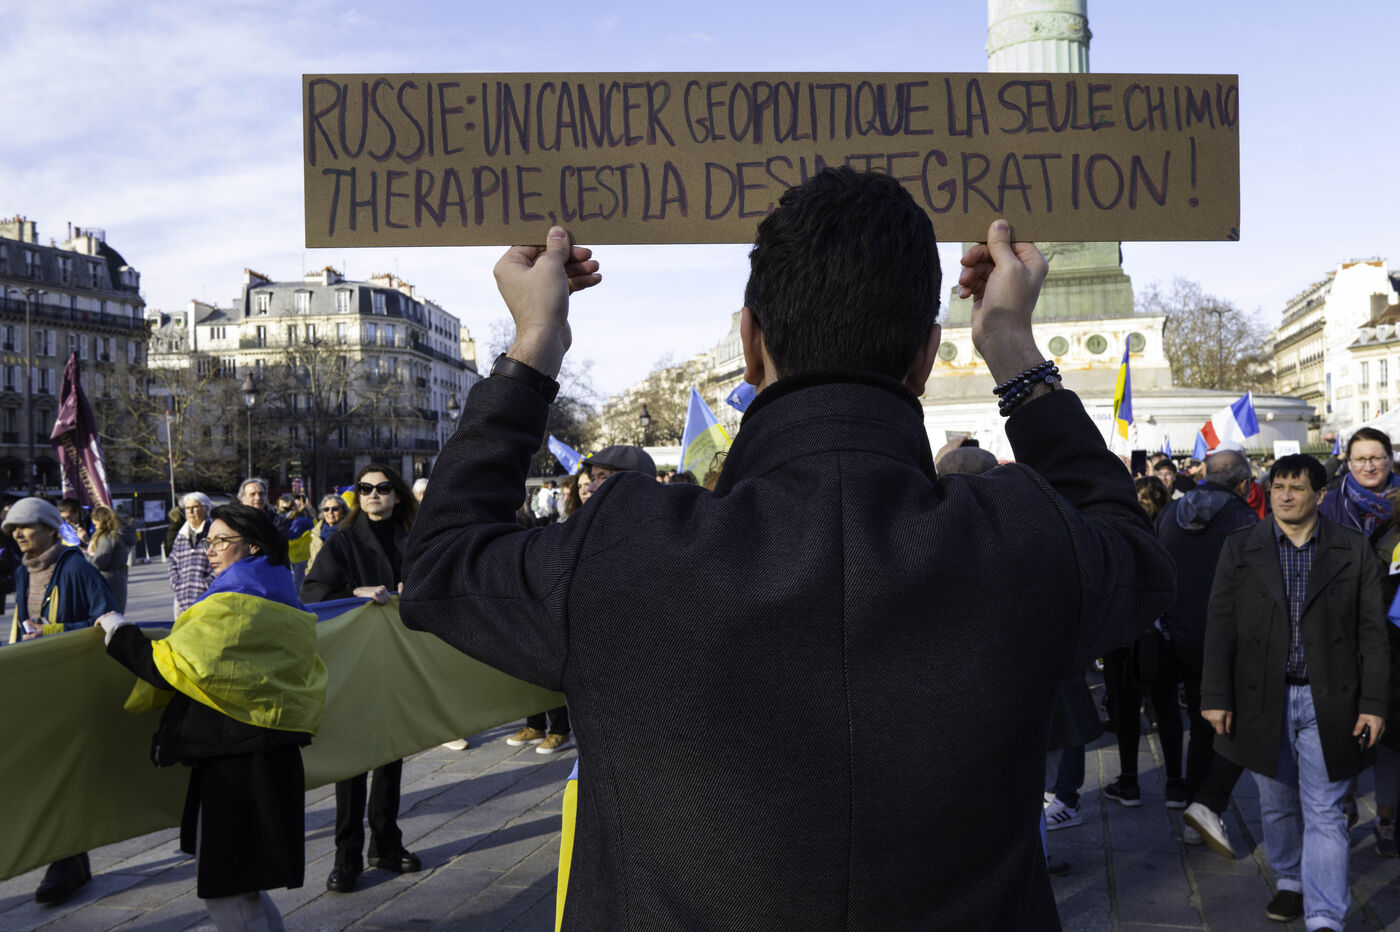 RUSSIE: UN CANCER GEOPOLITIQUE LA SEULE CHIMIO
THERAPIE, C'EST LA DESINTEGRATION !